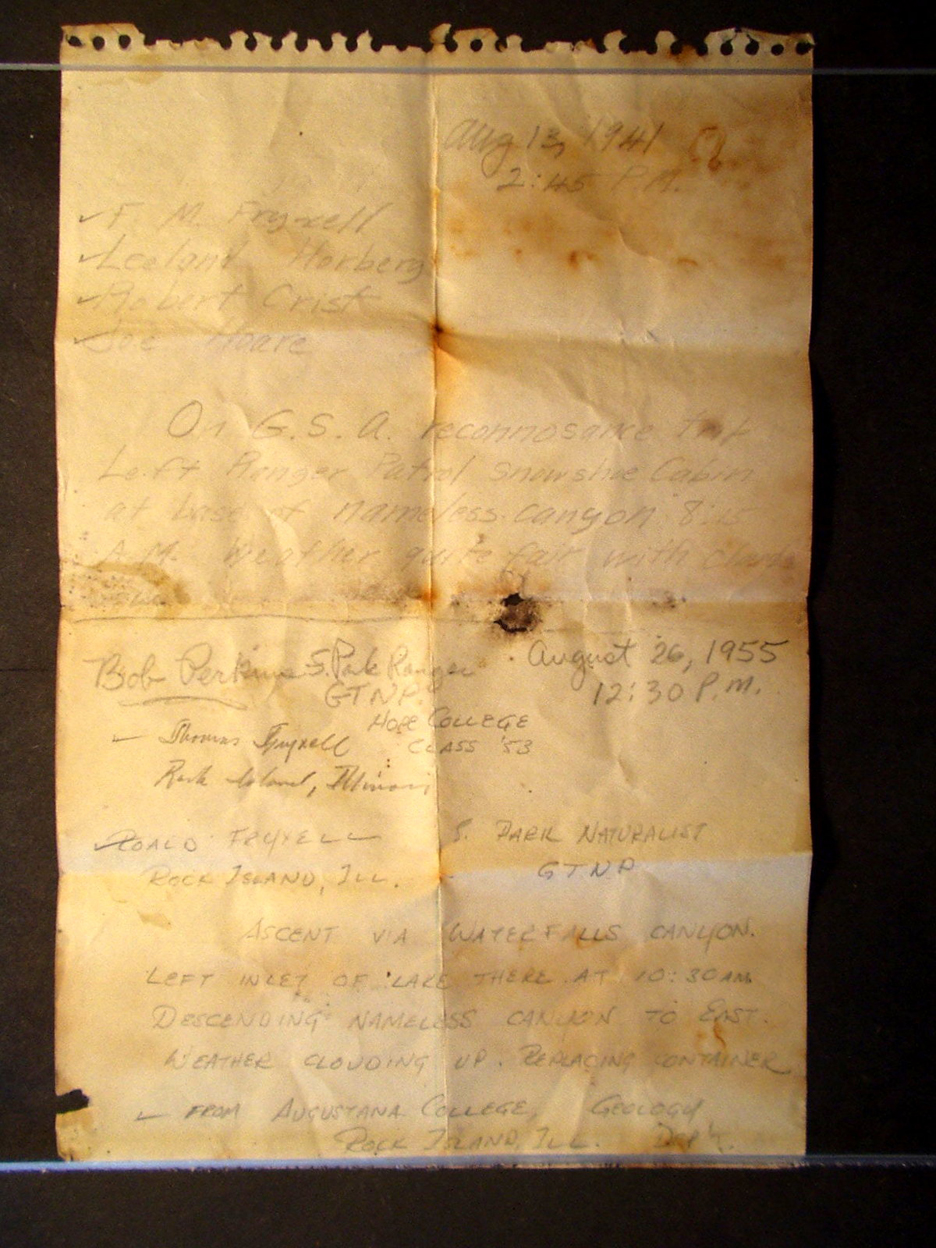 Aug 13, 1941
2:45 P.M.
F. M. Fryxell
Leeland Horberg
Robert Crist
Joe Hoare
On G.S.A. reconnosance
Left Ranger Patrol snowshoe Cabin
at base of nameless canyon 8:15
A.M. Weather quite fair with
Bob Perkins S. Park Ranger August 26, 1955
GTNP. 12:30 P.M.
HOPE COLLEGE
Thomas Fryxell CLASS '53
Rock Island, Illinois
ROALD FRYXELL S. PARK NATURALIST
ROCK ISLAND, ILL. GTNP
ASCENT VIA WATERFALLS CANYON.
LEFT INLET OF LAKE THERE AT 10:30AM
DESCENDING NAMELESS CANYON TO EAST.
WEATHER CLOUDING UP. REPLACING CONTAINER
FROM AUGUSTANA COLLEGE, GEOLOGY
ROCK ISLAND, ILL. Dep't.